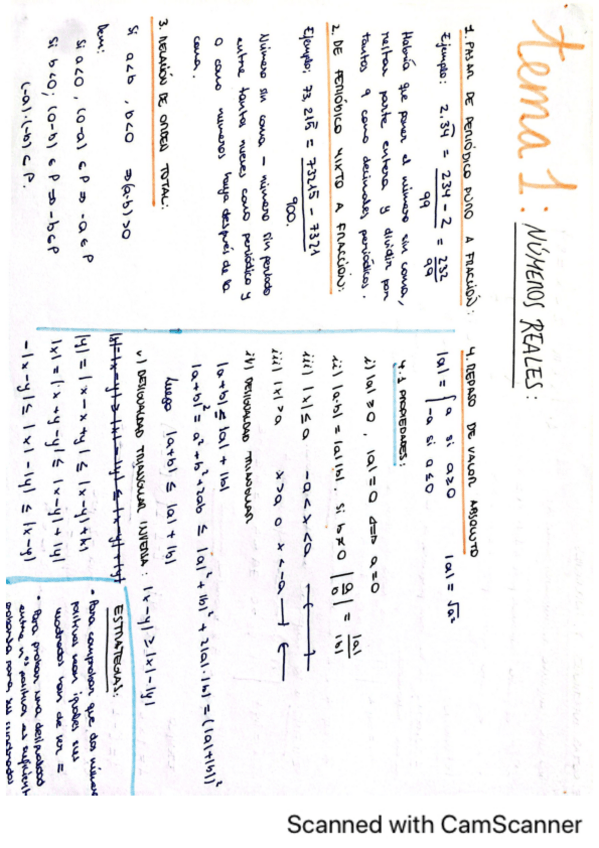 tema 1: NÚMEROS REALES:
1. PASAR DE PERIÓDICO PURO A FRACCIÓN:
Ejemplo: 2,34 = 234 - 2 / 99 = 232 / 99
Habría que poner el número sin coma,
restar parte entera y dividir por
tantos 9 como decimales periódicos.
2. DE PERIÓDICO MIXTO A FRACCIÓN:
Ejemplo: 73,215 = 73215 - 7321 / 900.
Número sin coma - número sin periodo
entre tantos nueves como periódico y
0 como números haya después de la
coma.
3. RELACIÓN DE ORDEN TOTAL:
Si a<b, b<0 ⇒ (a·b)>0
Dem:
Si a<0, (0-a) ∈ P ⇒ -a ∈ P
Si b<0; (0-b) ∈ P ⇒ -b ∈ P
(-a)·(-b) ∈ P.
4. REPASO DE VALOR ABSOLUTO
|a| = { a si a≥0
-a si a≤0
|a| = √a²
4.1 PROPIEDADES:
i) |a| ≥ 0, |a| = 0 ⇔ a = 0
ii) |a·b| = |a||b|. Si b≠0 |a/b| = |a|/|b|
iii) |x| ≤ a -a < x < a.
iii) |x| > a x > a o x < -a
iv) DESIGUALDAD TRIANGULAR
|a+b| ≤ |a| + |b|
|a+b|² = a² + b² + 2ab ≤ |a|² + |b|² + 2|a|·|b| = (|a|+|b|)²
Luego |a+b| ≤ |a| + |b|
v) DESIGUALDAD TRIANGULAR INVERSA: |x-y| ≥ |x| - |y|
|y| = |x - x + y| ≤ |x-y| + |x|
|x| = |x + y - y| ≤ |x-y| + |y|
-|x-y| ≤ |x| - |y| ≤ |x-y|
ESTRATEGIAS:
· Para comprobar que dos números
positivos sean iguales sus
cuadrados han de ser =
· Para probar una desigualdad
entre nºs positivos es suficiente
probarla para sus cuadrados
Scanned with CamScanner